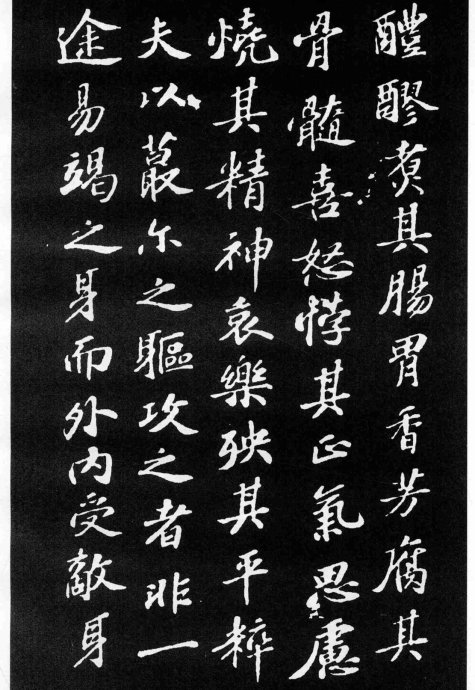 醴醪煑其腸胃香芳腐其
骨髓喜怒悖其正氣思慮
燒其精神哀樂殃其平粹
夫以蕞尓之驅攻之者非一
途易竭之身而外内受敵身